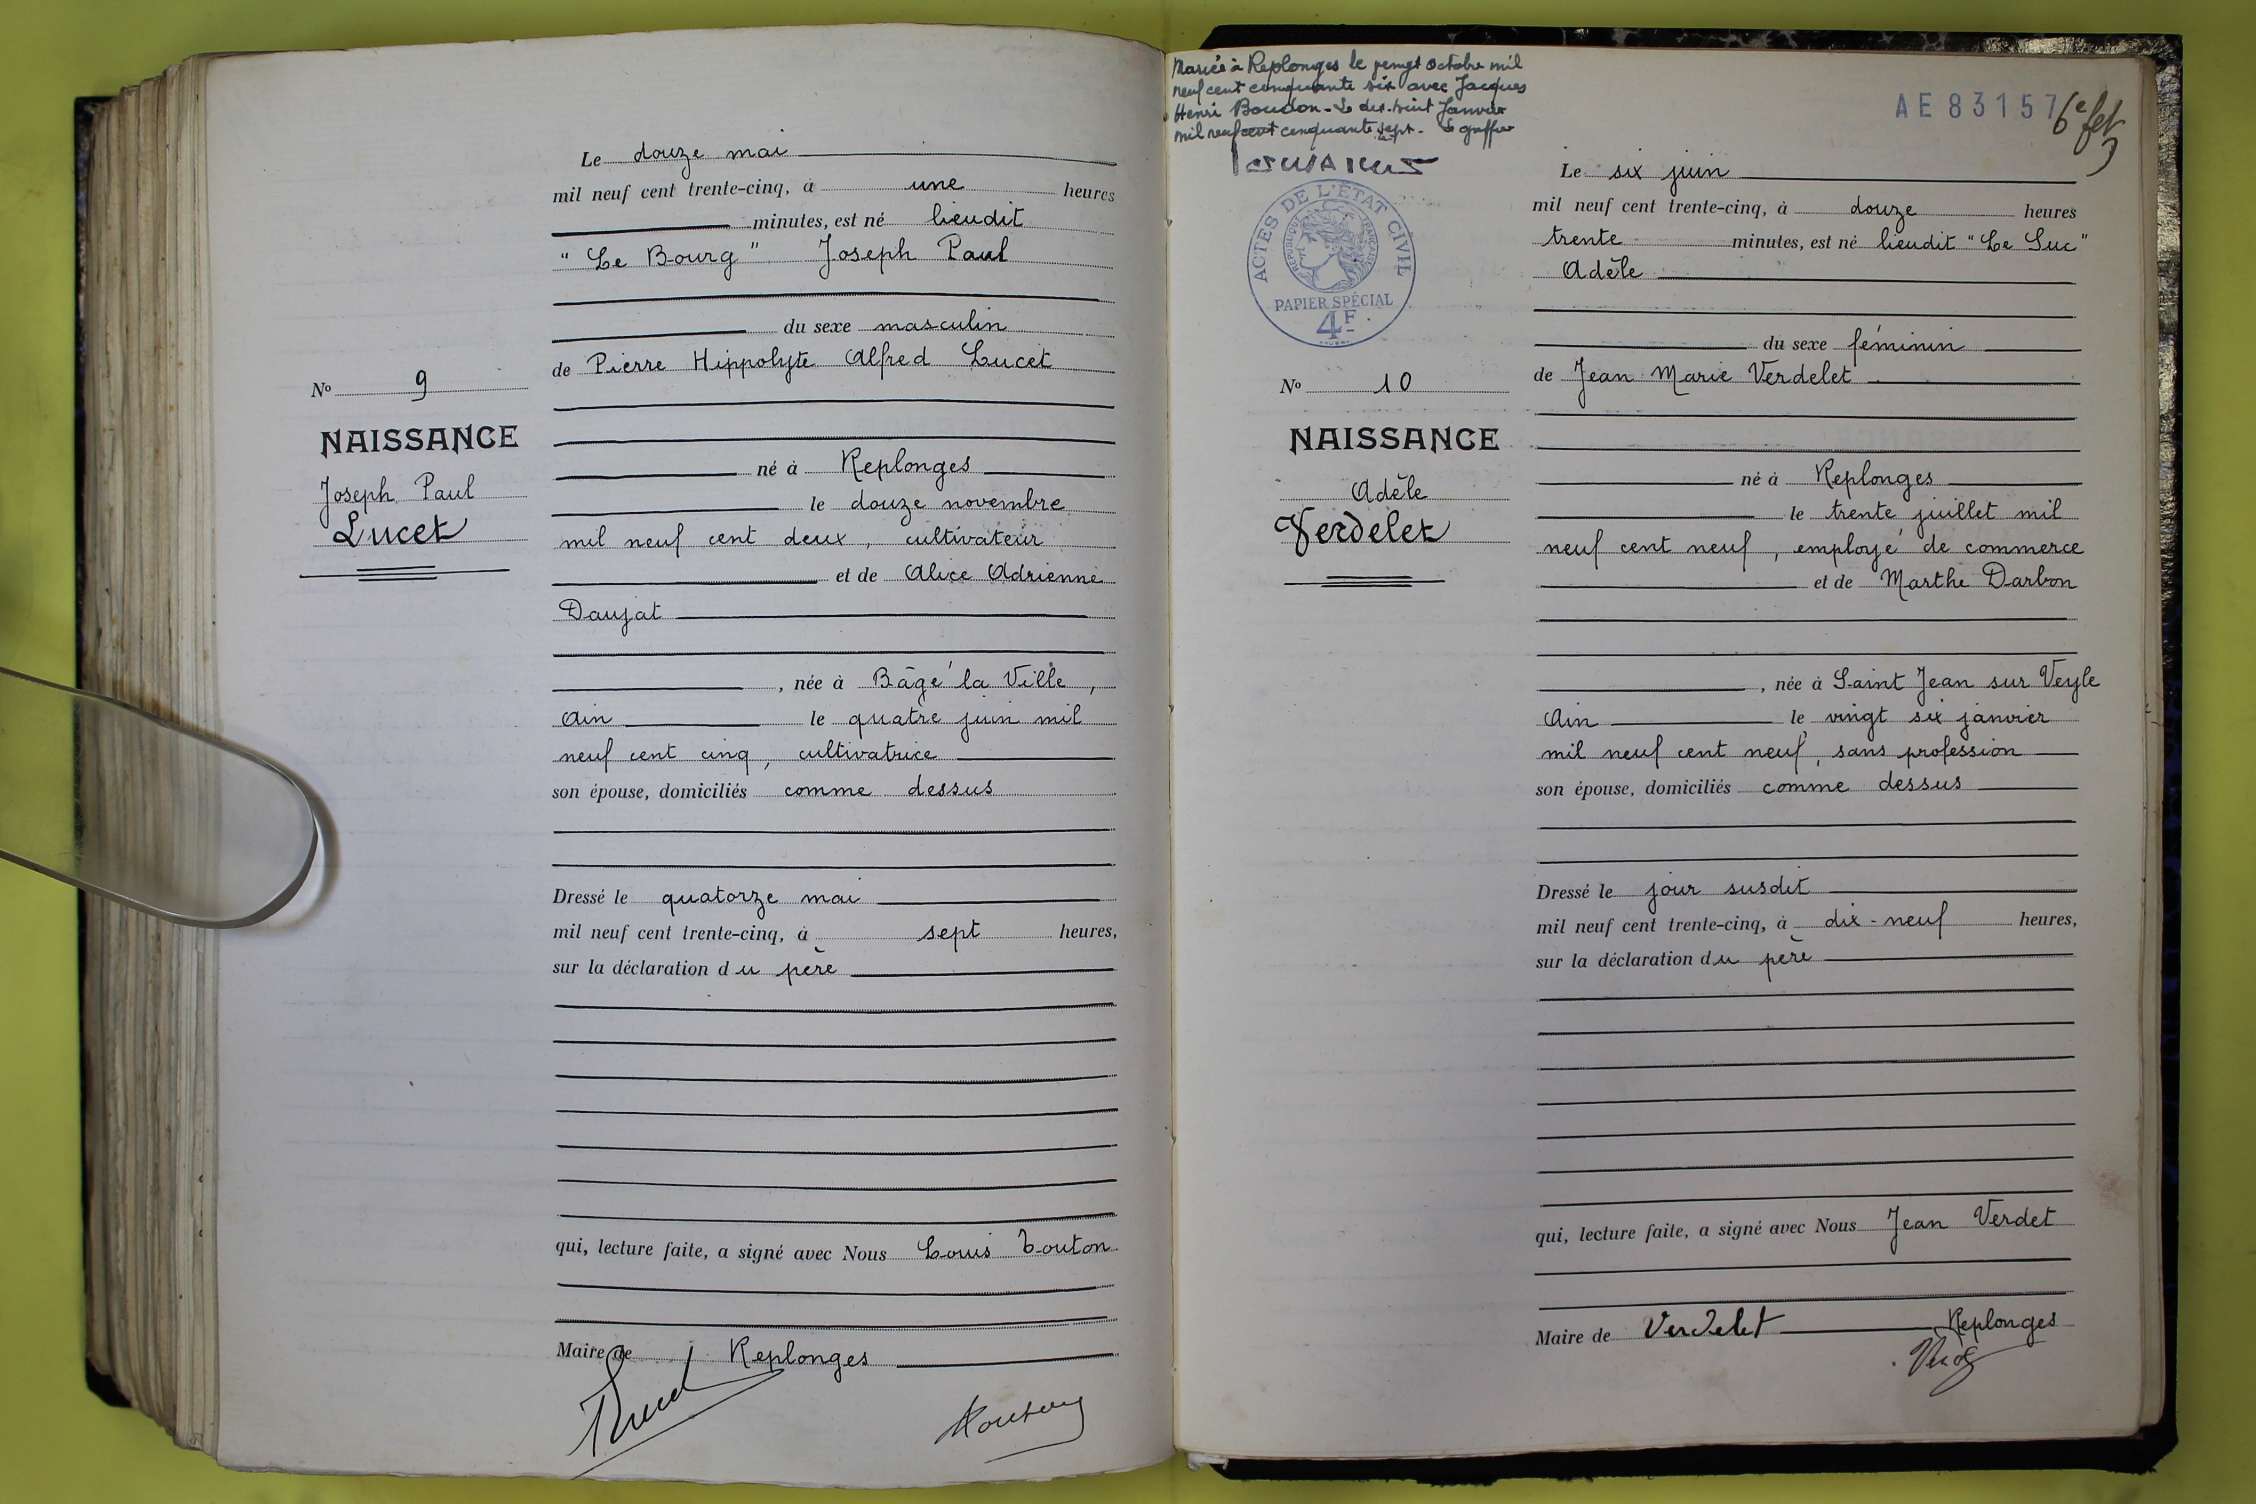 Le douze mai
mil neuf cent trente-cinq, à une heures
minutes, est né lieudit
" Le Bourg " Joseph Paul
du sexe masculin
de Pierre Hippolyte Alfred Lucet
né à Replonges
le douze novembre
mil neuf cent deux, cultivateur
et de Alice Adrienne
Daujat
, née à Bâgé la Ville,
Ain le quatre juin mil
neuf cent cinq, cultivatrice
son épouse, domiciliés comme dessus
Dressé le quatorze mai
mil neuf cent trente-cinq, à sept heures,
sur la déclaration du père
qui, lecture faite, a signé avec Nous Louis Touton
Maire de Replonges
No 9
NAISSANCE
Joseph Paul
Lucet
Mariée à Replonges le vingt Octobre mil
neuf cent cinquante six avec Jacques
Henri Boudon - Le dix-huit Janvier
mil neuf cent cinquante sept. Le greffier
AE 83157
6e fet
ACTES DE L'ÉTAT CIVIL
RÉPUBLIQUE FRANÇAISE
PAPIER SPÉCIAL
4F
No 10
NAISSANCE
Adèle
Verdelet
Le six juin
mil neuf cent trente-cinq, à douze heures
trente minutes, est né lieudit "Le Luc"
Adèle
du sexe féminin
de Jean Marie Verdelet
né à Replonges
le trente juillet mil
neuf cent neuf, employé de commerce
et de Marthe Darbon
, née à Saint Jean sur Veyle
Ain le vingt six janvier
mil neuf cent neuf, sans profession
son épouse, domiciliés comme dessus
Dressé le jour susdit
mil neuf cent trente-cinq, à dix-neuf heures,
sur la déclaration du père
qui, lecture faite, a signé avec Nous Jean Verdet
Maire de Verdelet Replonges